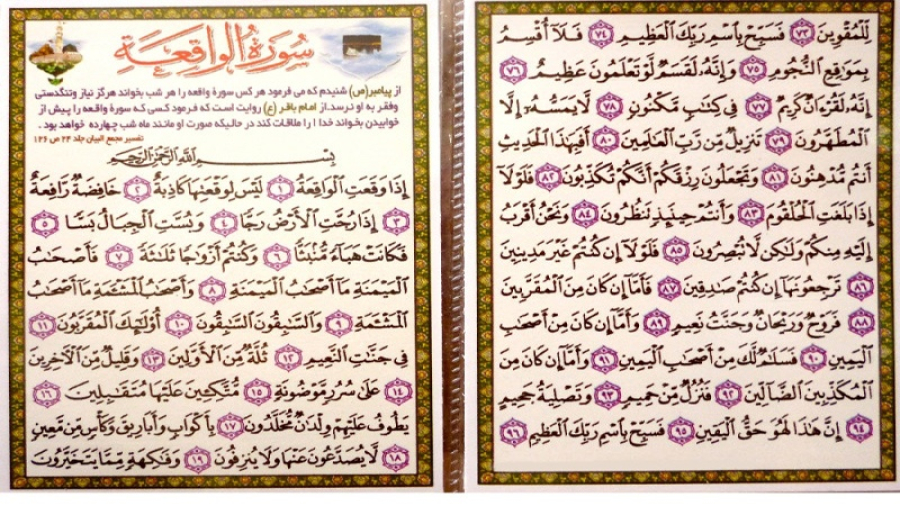 سُورَةُ الْوَاقِعَةِ
از پیامبر(ص) شنیدم که می فرمود هر کس سورهٔ واقعه را هر شب بخواند هرگز نیاز وتنگدستی
وفقر به او نرسد.از امام باقر (ع) روایت است که فرمود کسی که سورهٔ واقعه را پیش از
خوابیدن بخواند خدا را ملاقات کند در حالیکه صورت او مانند ماه شب چهارده خواهد بود .
تفسیر مجمع البیان جلد ۲۴ ص ۱۲۶
بِسْمِ اللَّهِ الرَّحْمَٰنِ الرَّحِيمِ
إِذَا وَقَعَتِ الْوَاقِعَةُ ﴿١﴾ لَيْسَ لِوَقْعَتِهَا كَاذِبَةٌ ﴿٢﴾ خَافِضَةٌ رَّافِعَةٌ
﴿٣﴾ إِذَا رُجَّتِ الْأَرْضُ رَجًّا ﴿٤﴾ وَبُسَّتِ الْجِبَالُ بَسًّا ﴿٥﴾
فَكَانَتْ هَبَاءً مُّنْبَثًّا ﴿٦﴾ وَكُنْتُمْ أَزْوَاجًا ثَلَاثَةً ﴿٧﴾ فَأَصْحَابُ
الْمَيْمَنَةِ مَا أَصْحَابُ الْمَيْمَنَةِ ﴿٨﴾ وَأَصْحَابُ الْمَشْئَمَةِ مَا أَصْحَابُ
الْمَشْئَمَةِ ﴿٩﴾ وَالسَّابِقُونَ السَّابِقُونَ ﴿١٠﴾ أُولَٰئِكَ الْمُقَرَّبُونَ ﴿١١﴾
فِي جَنَّاتِ النَّعِيمِ ﴿١٢﴾ ثُلَّةٌ مِّنَ الْأَوَّلِينَ ﴿١٣﴾ وَقَلِيلٌ مِّنَ الْآخِرِينَ
﴿١٤﴾ عَلَىٰ سُرُرٍ مَّوْضُونَةٍ ﴿١٥﴾ مُّتَّكِئِينَ عَلَيْهَا مُتَقَابِلِينَ ﴿١٦﴾
يَطُوفُ عَلَيْهِمْ وِلْدَانٌ مُّخَلَّدُونَ ﴿١٧﴾ بِأَكْوَابٍ وَأَبَارِيقَ وَكَأْسٍ مِّن مَّعِينٍ
﴿١٨﴾ لَّا يُصَدَّعُونَ عَنْهَا وَلَا يُنزِفُونَ ﴿١٩﴾ وَفَاكِهَةٍ مِّمَّا يَتَخَيَّرُونَ
لِّلْمُقْوِينَ ﴿٧٣﴾ فَسَبِّحْ بِاسْمِ رَبِّكَ الْعَظِيمِ ﴿٧٤﴾ فَلَا أُقْسِمُ
بِمَوَاقِعِ النُّجُومِ ﴿٧٥﴾ وَإِنَّهُ لَقَسَمٌ لَّوْ تَعْلَمُونَ عَظِيمٌ ﴿٧٦﴾
إِنَّهُ لَقُرْءَانٌ كَرِيمٌ ﴿٧٧﴾ فِي كِتَابٍ مَّكْنُونٍ ﴿٧٨﴾ لَّا يَمَسُّهُ إِلَّا
الْمُطَهَّرُونَ ﴿٧٩﴾ تَنزِيلٌ مِّن رَّبِّ الْعَالَمِينَ ﴿٨٠﴾ أَفَبِهَٰذَا الْحَدِيثِ
أَنتُم مُّدْهِنُونَ ﴿٨١﴾ وَتَجْعَلُونَ رِزْقَكُمْ أَنَّكُمْ تُكَذِّبُونَ ﴿٨٢﴾ فَلَوْلَا
إِذَا بَلَغَتِ الْحُلْقُومَ ﴿٨٣﴾ وَأَنتُمْ حِينَئِذٍ تَنظُرُونَ ﴿٨٤﴾ وَنَحْنُ أَقْرَبُ
إِلَيْهِ مِنكُمْ وَلَٰكِن لَّا تُبْصِرُونَ ﴿٨٥﴾ فَلَوْلَا إِن كُنتُمْ غَيْرَ مَدِينِينَ
﴿٨٦﴾ تَرْجِعُونَهَا إِن كُنتُمْ صَادِقِينَ ﴿٨٧﴾ فَأَمَّا إِن كَانَ مِنَ الْمُقَرَّبِينَ
﴿٨٨﴾ فَرَوْحٌ وَرَيْحَانٌ وَجَنَّتُ نَعِيمٍ ﴿٨٩﴾ وَأَمَّا إِن كَانَ مِنْ أَصْحَابِ
الْيَمِينِ ﴿٩٠﴾ فَسَلَامٌ لَّكَ مِنْ أَصْحَابِ الْيَمِينِ ﴿٩١﴾ وَأَمَّا إِن كَانَ مِنَ
الْمُكَذِّبِينَ الضَّالِّينَ ﴿٩٢﴾ فَنُزُلٌ مِّنْ حَمِيمٍ ﴿٩٣﴾ وَتَصْلِيَةُ جَحِيمٍ
﴿٩٤﴾ إِنَّ هَٰذَا لَهُوَ حَقُّ الْيَقِينِ ﴿٩٥﴾ فَسَبِّحْ بِاسْمِ رَبِّكَ الْعَظِيمِ ﴿٩٦﴾